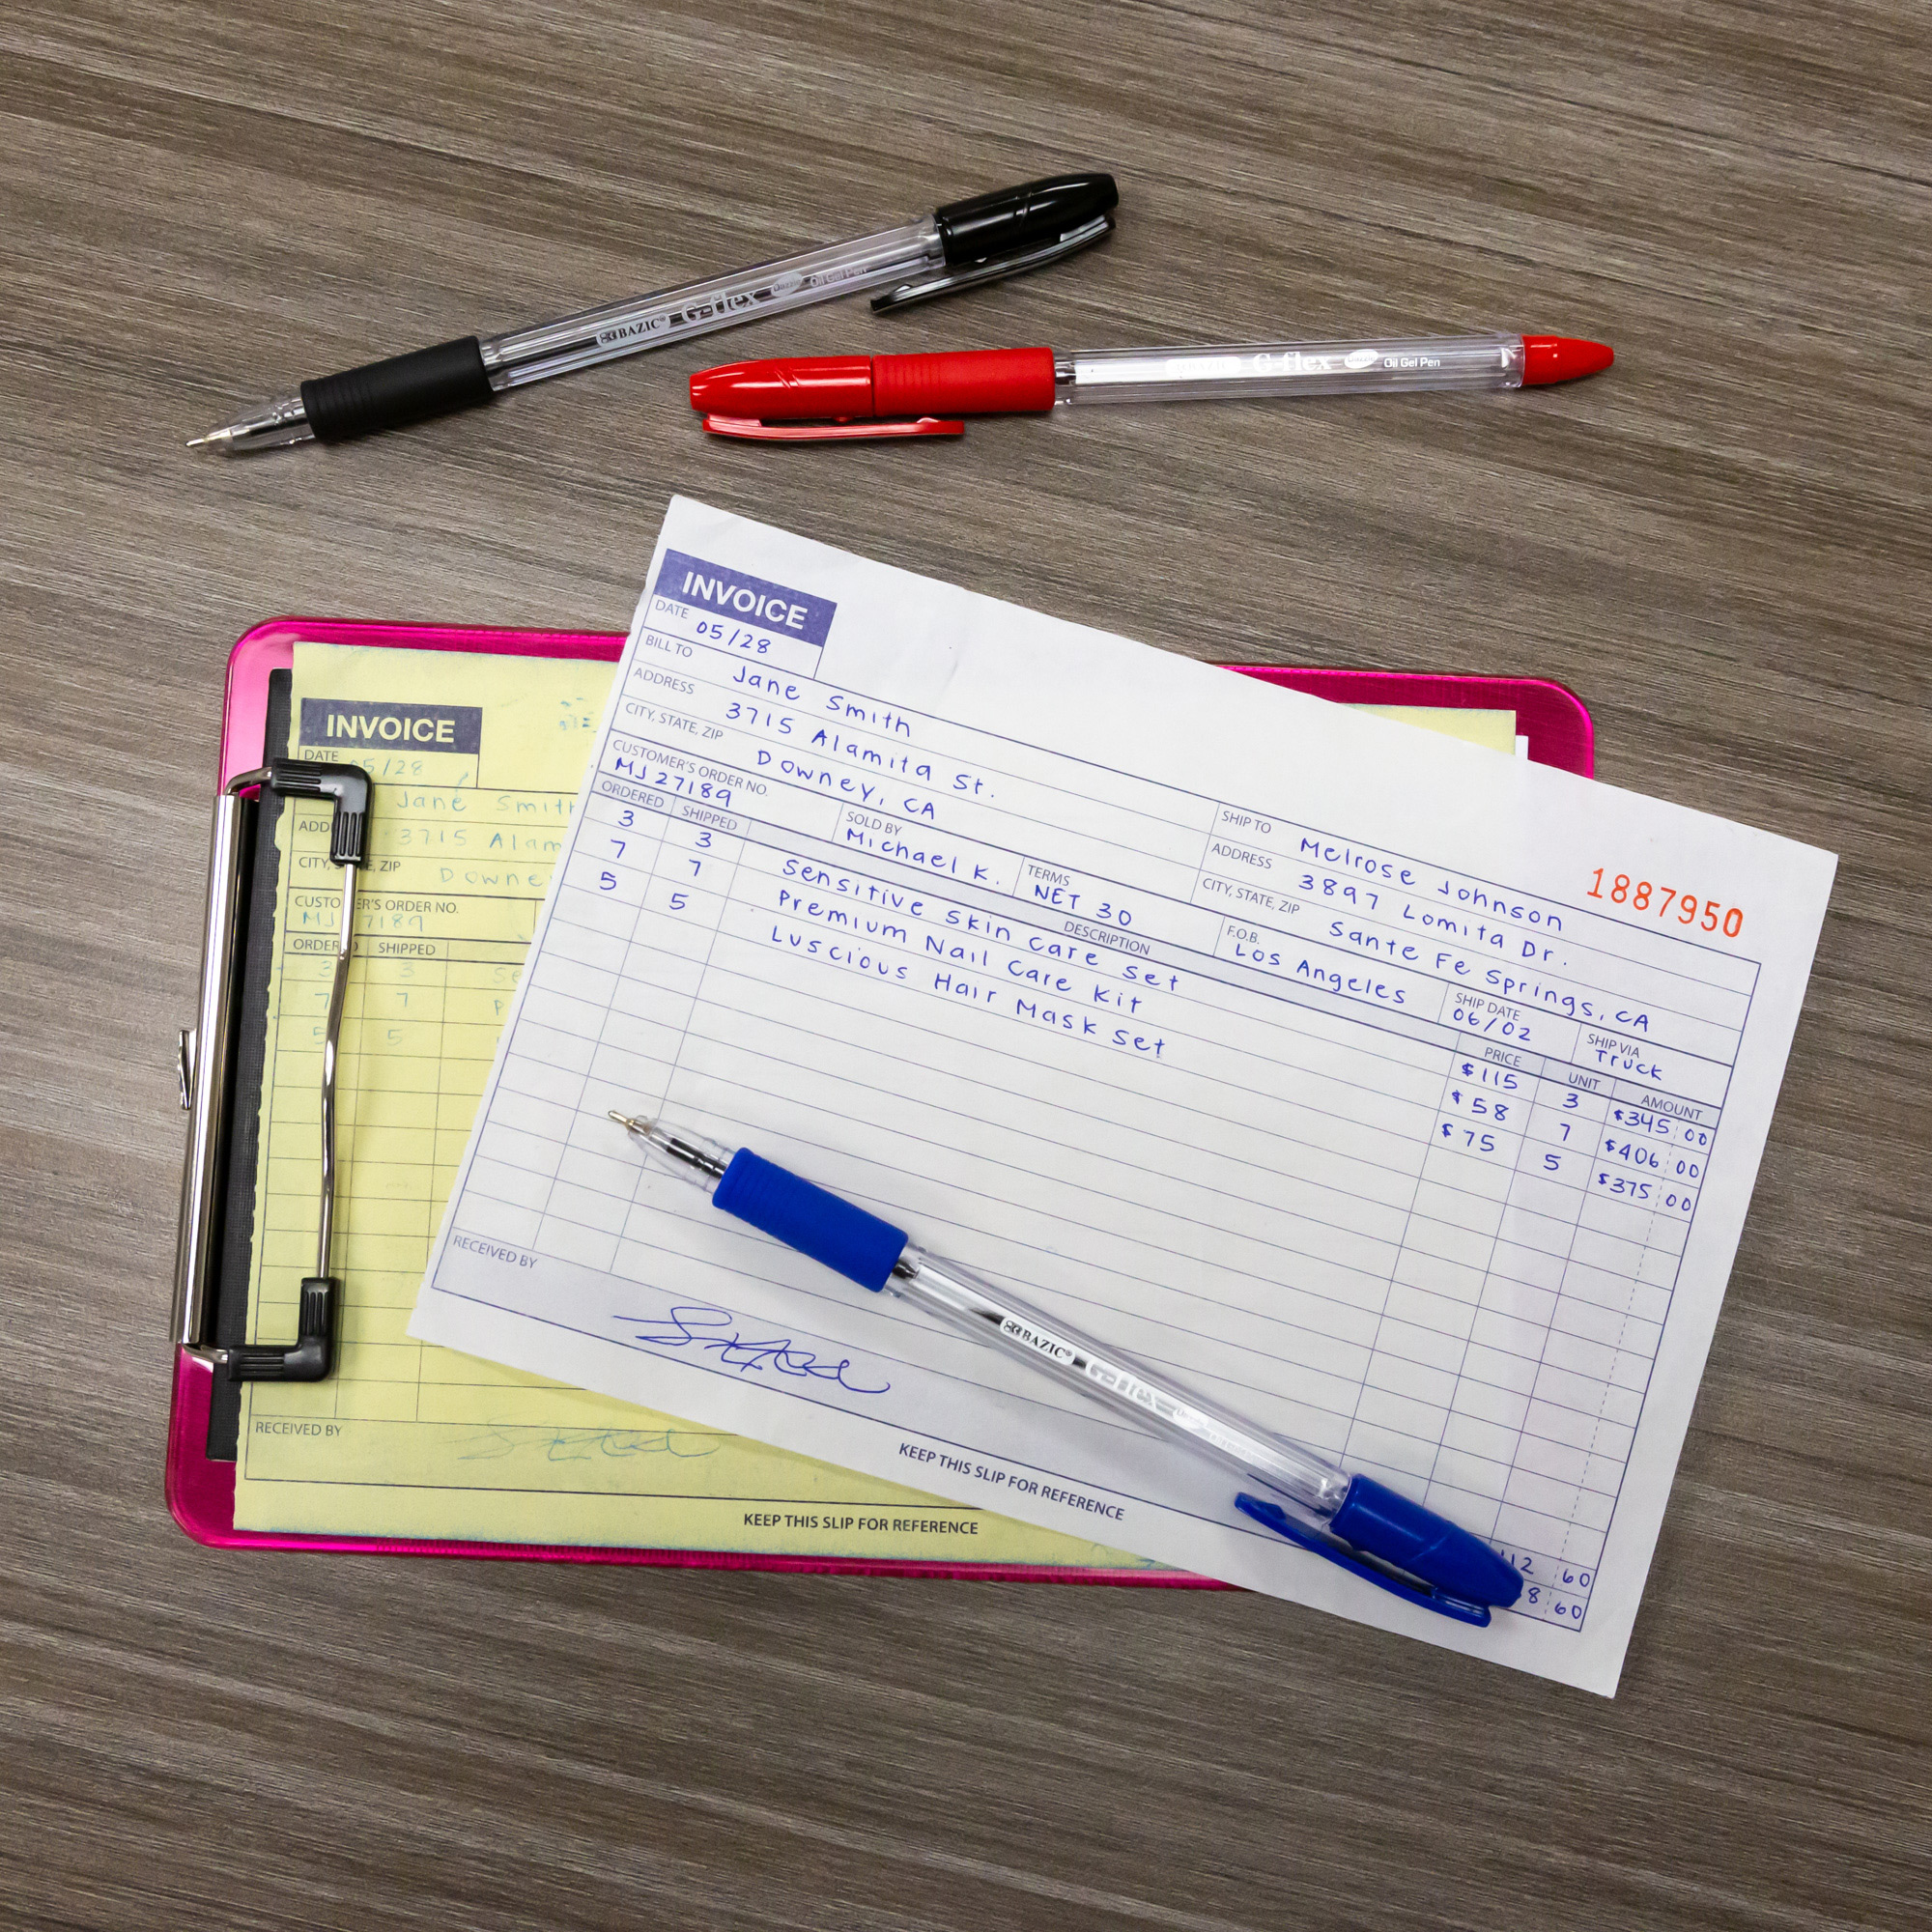 BAZIC® G-flex Dazzle Oil Gel Pen
BAZIC G-flex Dazzle Oil Gel Pen
INVOICE
DATE 05/28
BILL TO Jane Smith
ADDRESS 3715 Alamita St.
CITY, STATE, ZIP Downey, CA
SHIP TO Melrose Johnson
1887950
ADDRESS 3897 Lomita Dr.
CITY, STATE, ZIP Sante Fe Springs, CA
CUSTOMER'S ORDER NO. MJ27189
SOLD BY Michael K.
TERMS NET 30
F.O.B. Los Angeles
SHIP DATE 06/02
SHIP VIA Truck
ORDERED SHIPPED DESCRIPTION PRICE UNIT AMOUNT
3 3 Sensitive Skin Care Set $115 3 $345 00
7 7 Premium Nail Care Kit $58 7 $406 00
5 5 Luscious Hair Mask Set $75 5 $375 00
12 60
8 60
RECEIVED BY
KEEP THIS SLIP FOR REFERENCE
BAZIC® G-flex
INVOICE
DATE 05/28
Jane Smith
ADD 3715 Alam
CITY, S E, ZIP Downe
CUSTO ER'S ORDER NO.
MJ 7189
ORDER SHIPPED
3 3 Se
7 7 P
5 5
RECEIVED BY
KEEP THIS SLIP FOR REFERENCE